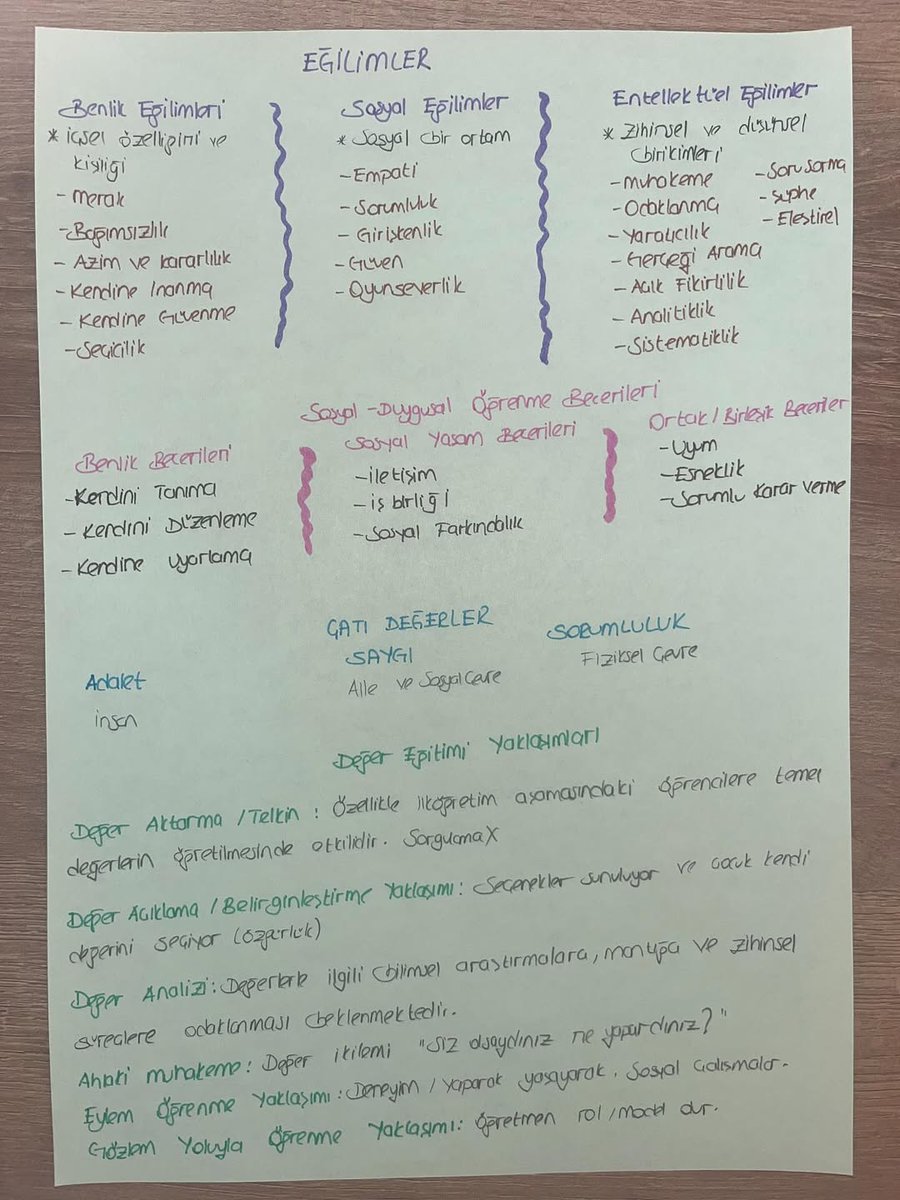 EĞİLİMLER
Benlik Eğilimleri
* içsel özelliğini ve
kişiliği
- Merak
- Bağımsızlık
- Azim ve kararlılık
- Kendine İnanma
- Kendine Güvenme
- Seçicilik
Sosyal Eğilimler
* Sosyal bir ortam
- Empati
- Sorumluluk
- Girişkenlik
- Güven
- Oyunseverlik
Entellektüel Eğilimler
* Zihinsel ve düşünsel
birikimleri
- Muhakeme
- Odaklanma
- Yaratıcılık
- Gerçeği Arama
- Açık Fikirlilik
- Analitiklik
- Sistematiklik
- Soru sorma
- Şüphe
- Eleştirel
Sosyal-Duygusal Öğrenme Becerileri
Benlik Becerileri
- Kendini Tanıma
- Kendini Düzenleme
- Kendine Uyarlama
Sosyal Yaşam Becerileri
- İletişim
- iş birliği
- Sosyal Farkındalık
Ortak / Birleşik Beceriler
- Uyum
- Esneklik
- Sorumlu Karar verme
ÇATI DEĞERLER
Adalet
insan
SAYGI
Aile ve Sosyal Çevre
SORUMLULUK
Fiziksel Çevre
Değer Eğitimi Yaklaşımları
Değer Aktarma / Telkin : Özellikle ilköğretim aşamasındaki öğrencilere temel
değerlerin öğretilmesinde etkilidir. Sorgulama X
Değer Açıklama / Belirginleştirme Yaklaşımı : Seçenekler sunuluyor ve çocuk kendi
değerini seçiyor (özgürlük)
Değer Analizi : Değerlerle ilgili bilimsel araştırmalara, mantığa ve zihinsel
süreçlere odaklanması beklenmektedir.
Ahlaki muhakeme : Değer ikilemi "siz olsaydınız ne yapardınız?"
Eylem Öğrenme Yaklaşımı : Deneyim / yaparak yaşayarak. Sosyal çalışmalar.
Gözlem Yoluyla Öğrenme Yaklaşımı : öğretmen rol / model dur.